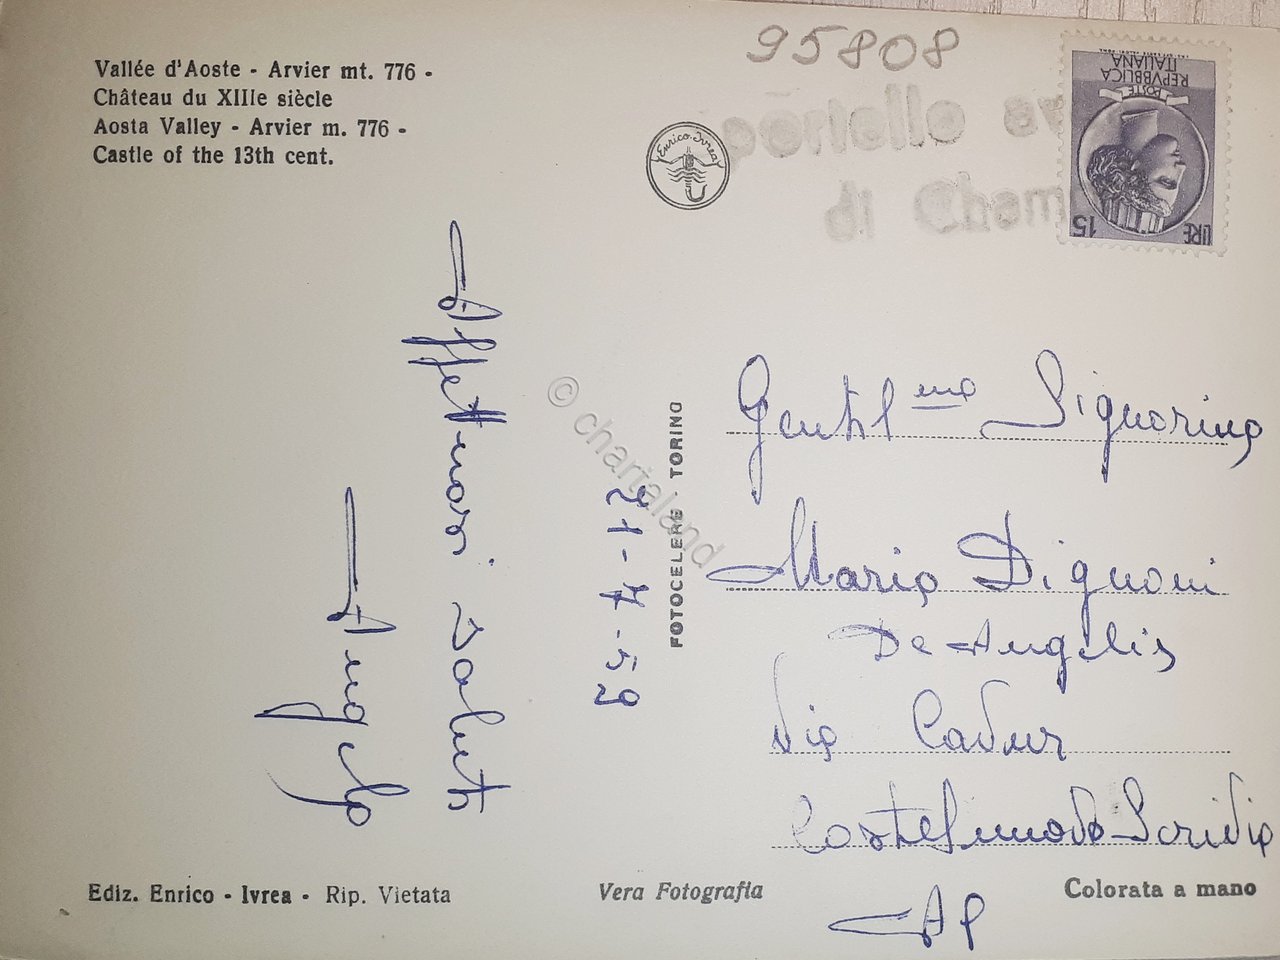 Vallée d'Aoste - Arvier mt. 776 -
Château du XIIIe siècle
Aosta Valley - Arvier m. 776 -
Castle of the 13th cent.
95808
portello
di Cham
Enrico - Ivrea
POSTE
REPVBBLICA
ITALIANA
LIRE 15
Affettuosi saluti
Angelo
21-7-59
FOTOCELERE TORINO
© chartaland
Gentil.ma Signorina
Maria Dignoni
De Angelis
Via Cavour
Castelnuovo Scrivia
AP
Ediz. Enrico - Ivrea - Rip. Vietata
Vera Fotografia
Colorata a mano